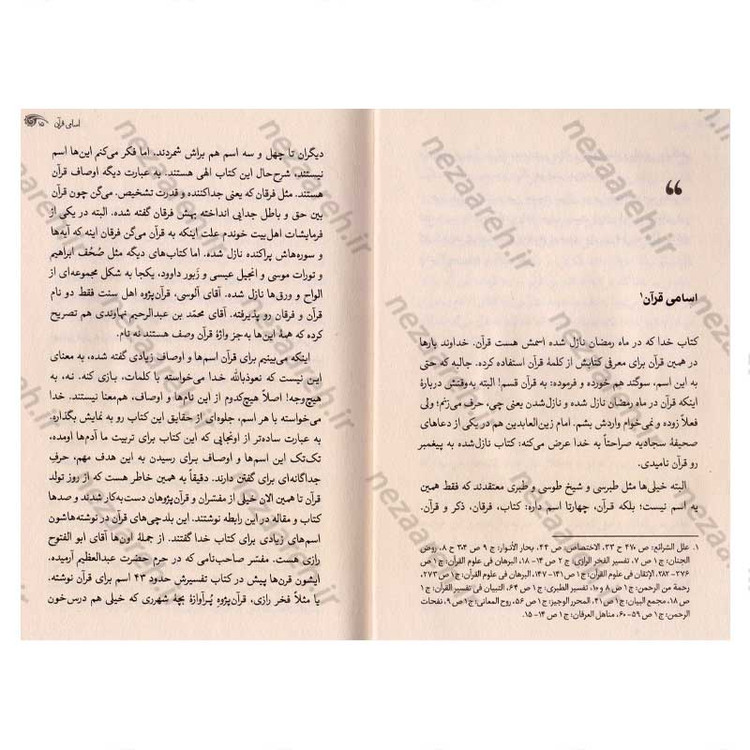 “
اسامی قرآن۱
کتاب خدا که در ماه رمضان نازل شده اسمش هست قرآن. خداوند بارها
در همین قرآن برای معرفی کتابش از کلمۀ قرآن استفاده کرده. جالبه که حتی
به این اسم، سوگند هم خورده و فرموده: به قرآن قسم! البته به‌وقتش دربارۀ
اینکه قرآن در ماه رمضان نازل شده و نازل‌شدن یعنی چی، حرف می‌زنم؛ ولی
فعلاً زوده و نمی‌خوام واردش بشم. امام زین‌العابدین هم در یکی از دعاهای
صحیفۀ سجادیه صراحتاً به خدا عرض می‌کنه: کتاب نازل‌شده به پیغمبر
رو قرآن نامیدی.
البته خیلی‌ها مثل طبرسی و شیخ طوسی و طبری معتقدند که فقط همین
یه اسم نیست؛ بلکه قرآن، چهارتا اسم داره: کتاب، فرقان، ذکر و قرآن.
۱. علل الشرائع: ص ۴۷۰ ح ۳۳، الاختصاص: ص ۴۴، بحار الأنوار: ج ۹ ص ۳۰۴ ح ۸، روض
الجنان: ج ۱ ص ۷، تفسیر الفخر الرازی: ج ۲ ص ۱۴-۱۸، البرهان فی علوم القرآن: ج ۱ ص
۲۷۶-۲۸۲، الإتقان فی علوم القرآن: ج ۱ ص ۱۴۱-۱۴۷، البرهان فی علوم القرآن: ج ۱ ص ۲۷۳،
رحمة من الرحمن: ج ۱ ص ۸ و ۱۰، تفسیر الطبری: ج ۱ ص ۶۴، التبیان فی تفسیر القرآن: ج ۱
ص ۱۸، مجمع البیان: ج ۱ ص ۴۱، المحرر الوجیز: ج ۱ ص ۵۶، روح المعانی: ج ۱ ص ۹، نفحات
الرحمن: ج ۱ ص ۵۹-۶۰، مناهل العرفان: ج ۱ ص ۱۴-۱۵.
اسامی قرآن ۱۵
دیگران تا چهل و سه اسم هم براش شمردند. اما فکر می‌کنم این‌ها اسم
نیستند، شرح‌حال این کتاب الهی هستند. به عبارت دیگه اوصاف قرآن
هستند. مثل فرقان که یعنی جداکننده و قدرت تشخیص. می‌گن چون قرآن
بین حق و باطل جدایی انداخته بهش فرقان گفته شده. البته در یکی از
فرمایشات اهل‌بیت خوندم علت اینکه به قرآن می‌گن فرقان اینه که آیه‌ها
و سوره‌هاش پراکنده نازل شده. اما کتاب‌های دیگه مثل صُحُف ابراهیم
و تورات موسی و انجیل عیسی و زَبور داوود، یکجا به شکل مجموعه‌ای از
الواح و ورق‌ها نازل شده. آقای آلوسی، قرآن‌پژوه اهل سنت فقط دو نام
قرآن و فرقان رو پذیرفته. آقای محمّد بن عبدالرحیم نهاوندی هم تصریح
کرده که همۀ این‌ها به‌جز واژۀ قرآن وصف هستند نه نام.
اینکه می‌بینیم برای قرآن اسم‌ها و اوصاف زیادی گفته شده، به معنای
این نیست که نعوذبالله خدا می‌خواسته با کلمات، بازی کنه. نـه، به
هیچ‌وجه! اصلاً هیچ‌کدوم از این نام‌ها و اوصاف، هم‌معنا نیستند. خدا
می‌خواسته با هر اسم، جلوه‌ای از حقایق این کتاب رو به نمایش بگذاره.
به عبارت ساده‌تر از اونجایی که این کتاب برای تربیت ما آدم‌ها اومده،
تک‌تک این اسم‌ها و اوصاف برای رسیدن به این هدف مهم، حرفِ
جداگانه‌ای برای گفتن دارند. دقیقاً به همین خاطر هست که از روز تولد
قرآن تا همین الان خیلی از مفسّران و قرآن‌پژوهان دست‌به‌کار شدند و صدها
کتاب و مقاله در این رابطه نوشتند. این بلدچی‌های قرآن در نوشته‌هاشون
اسم‌های زیادی برای کتاب خدا گفتند. از جملۀ اون‌ها آقای ابو الفتوح
رازی هست. مفسّر صاحب‌نامی که در حرم حضرت عبدالعظیم آرمیده.
ایشون قرن‌ها پیش در کتاب تفسیرش حدود ۴۳ اسم برای قرآن نوشته.
یا مثلاً فخر رازی، قرآن‌پژوهِ پُرآوازۀ بچه شهرری که خیلی هم درس‌خون
nezaareh.ir